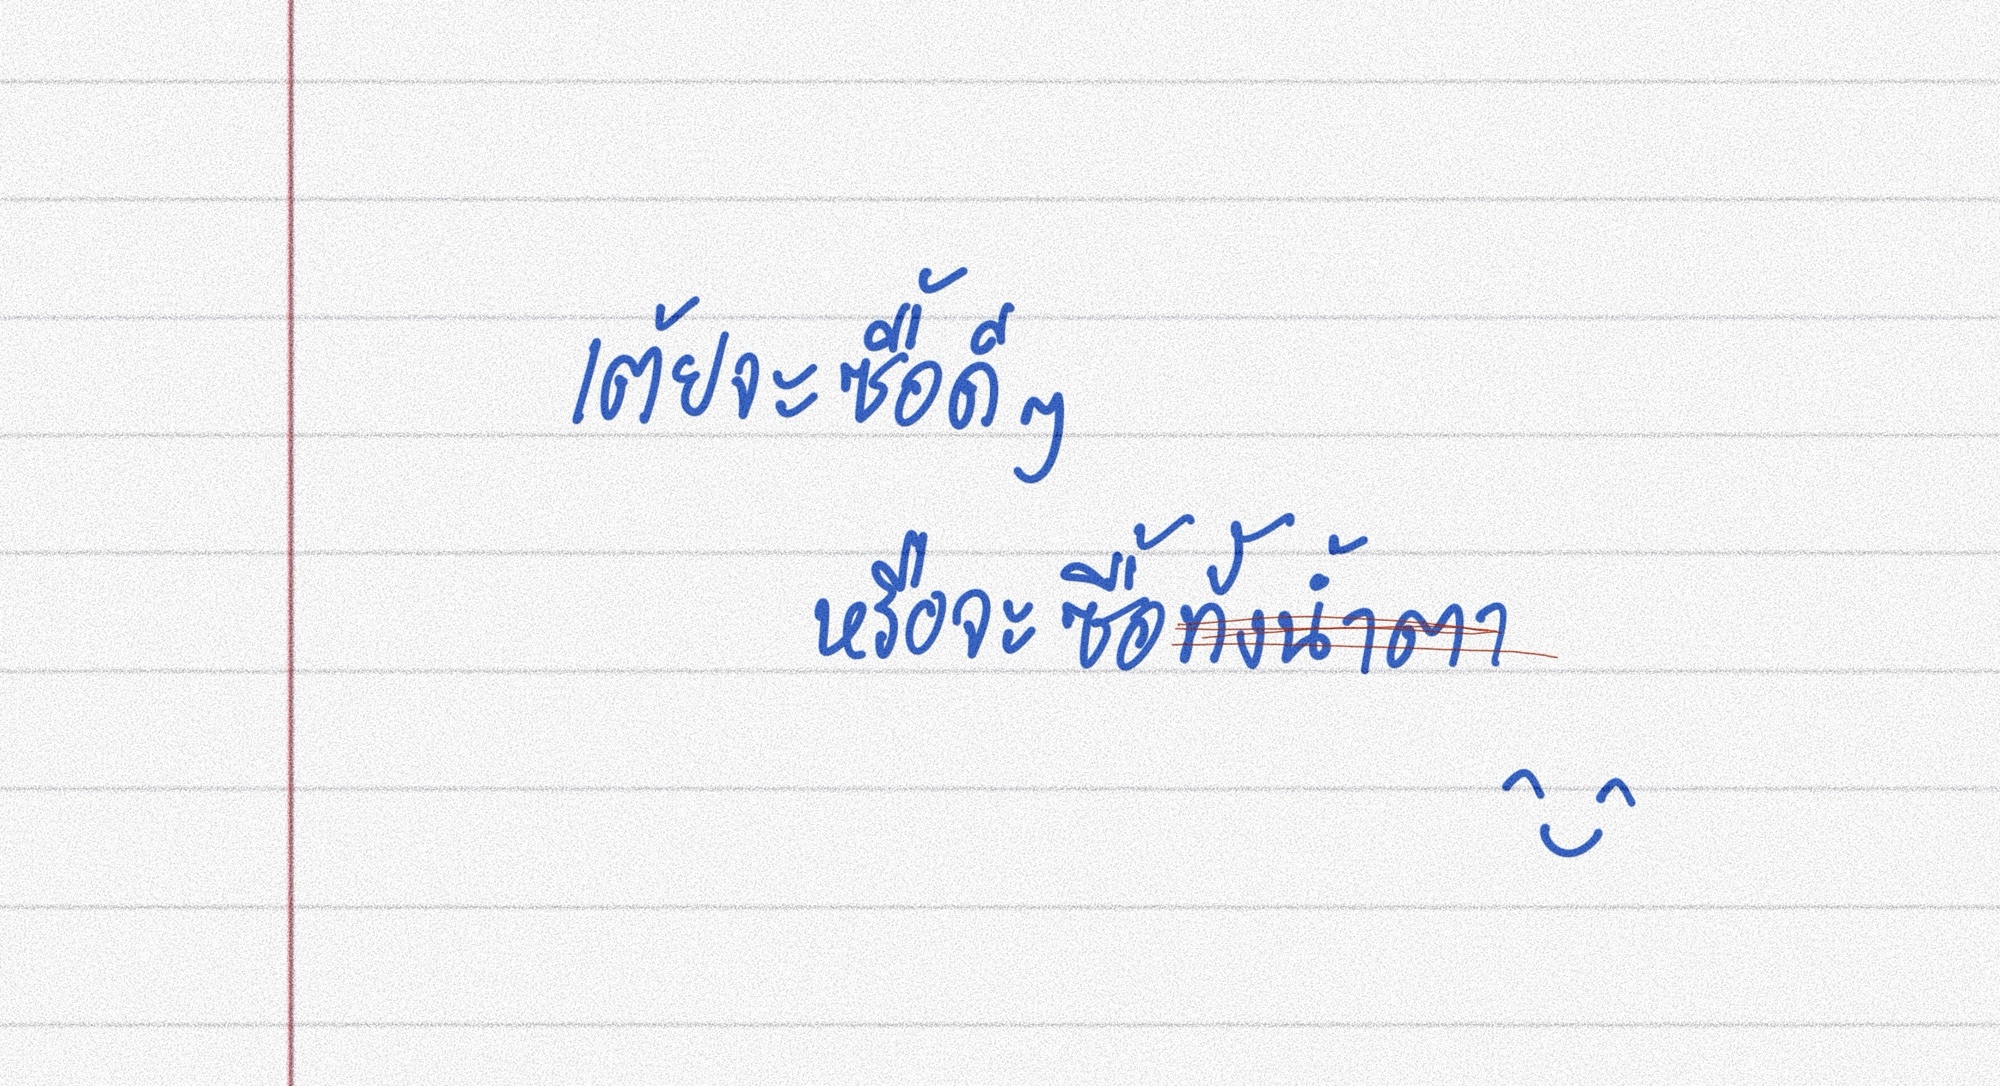 เต้ยจะซื้อดีๆ
หรือจะซื้อทั้งน้ำตา